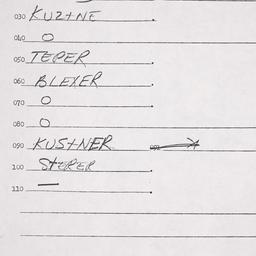 030 KUZTNE
040 O
050 TEPER
060 BLEXER
070 O
080 O
090 KUSTNER
100 STERER
110 —